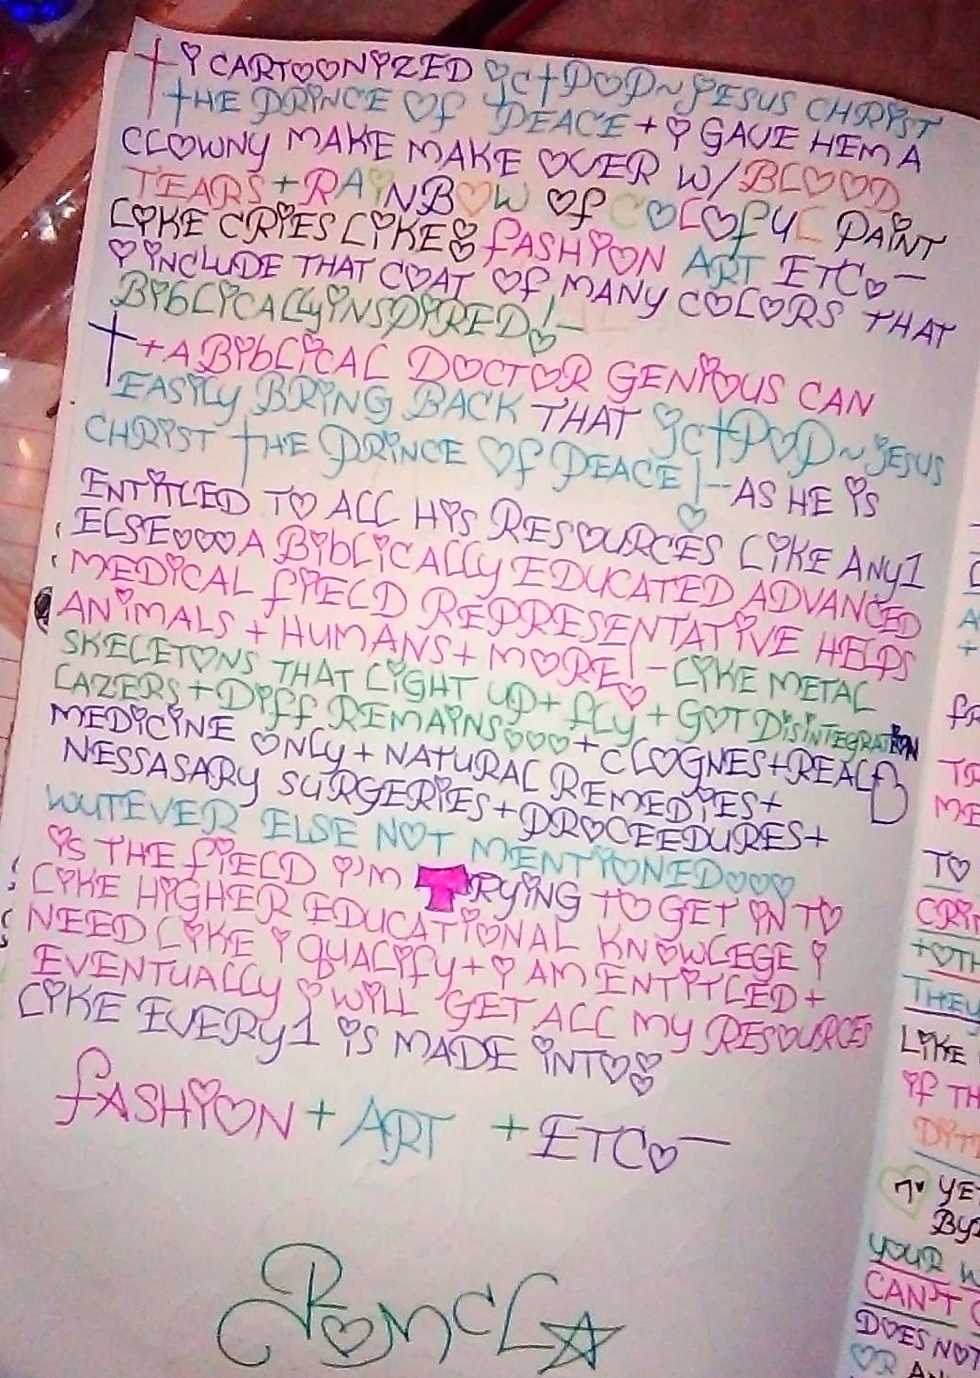 I CARTOONIZED JCTPOP~JESUS CHRIST
THE PRINCE OF PEACE + I GAVE HEM A
CLOWNY MAKE MAKE OVER W/BLOOD
TEARS + RAINBOW OF COLOFUL PAINT
LIKE CRIES LIKE FASHION ART ETC.—
I INCLUDE THAT COAT OF MANY COLORS THAT
BIBLICALLY INSPIRED!—
+ A BIBLICAL DOCTOR GENIOUS CAN
EASILY BRING BACK THAT JCTPOP~JESUS
CHRIST THE PRINCE OF PEACE!-- AS HE IS
ENTITLED TO ALL HIS RESOURCES LIKE ANY1
ELSE... A BIBLICALLY EDUCATED ADVANCED
MEDICAL FIELD REPRESENTATIVE HELPS
ANIMALS + HUMANS + MORE! - LIKE METAL
SKELETONS THAT LIGHT UP + FLY + GOT DISINTEGRATION
LAZERS + DIFF REMAINS... + CLOGNES + REAL
MEDICINE ONLY + NATURAL REMEDIES +
NESSASARY SURGERIES + PROCEEDURES +
WUTEVER ELSE NOT MENTIONED...
IS THE FIELD I'M TRYING TO GET IN TO
LIKE HIGHER EDUCATIONAL KNOWLEGE I
NEED LIKE I QUALIFY + I AM ENTITLED +
EVENTUALLY I WILL GET ALL MY RESOURCES
LIKE EVERY1 IS MADE INTO
FASHION + ART + ETC.—
TO
LIKE
IF TH
YE
YOUR W
CAN'T
DOES NOT
OR AN